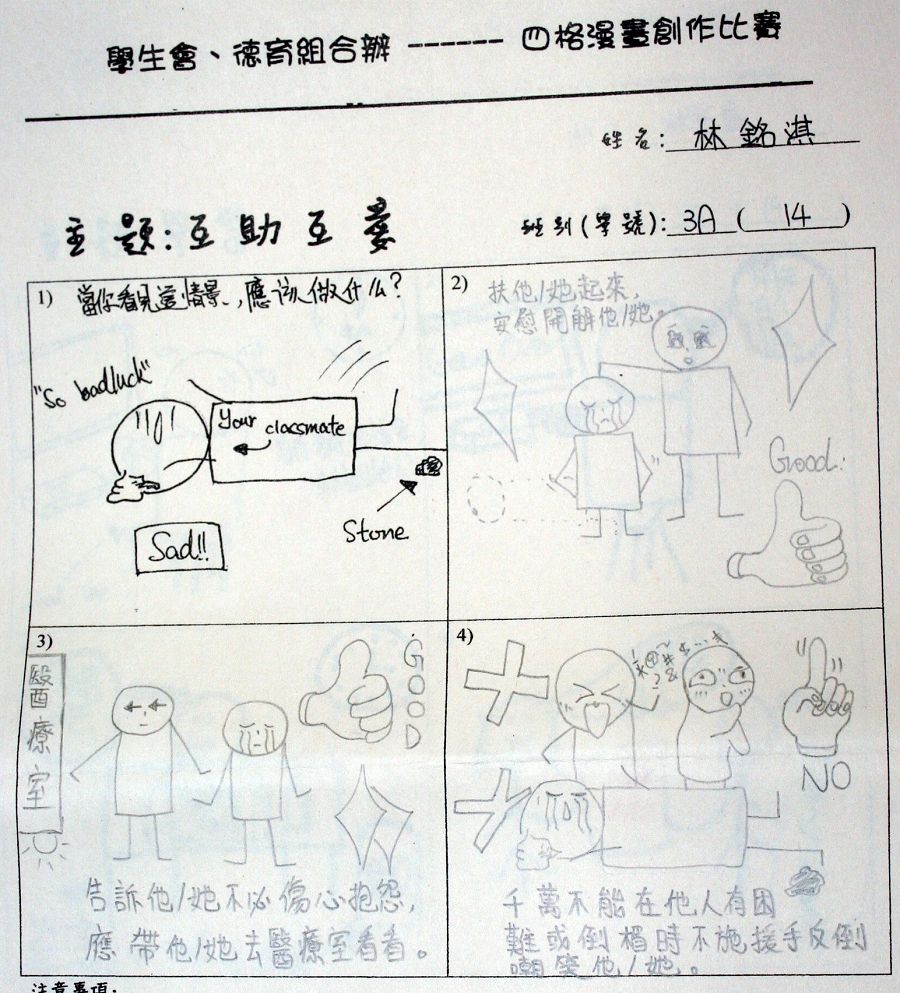 學生會、德育組合辦 ------ 四格漫畫創作比賽
姓名: 林銘淇
主題:互助互愛
班別(學號): 3A ( 14 )
1) 當你看見這情景,應該做什么?
"So badluck"
Your classmate
Stone
Sad!!
2) 扶他/她起來,
安慰開解他/她。
Good!
3)
醫療室
GOOD
告訴他/她不必傷心抱怨,
應帶他/她去醫療室看看。
4)
!@~#$...*
*?&
NO
千萬不能在他人有困
難或倒楣時不施援手反倒
嘲笑他/她。
注意事項: